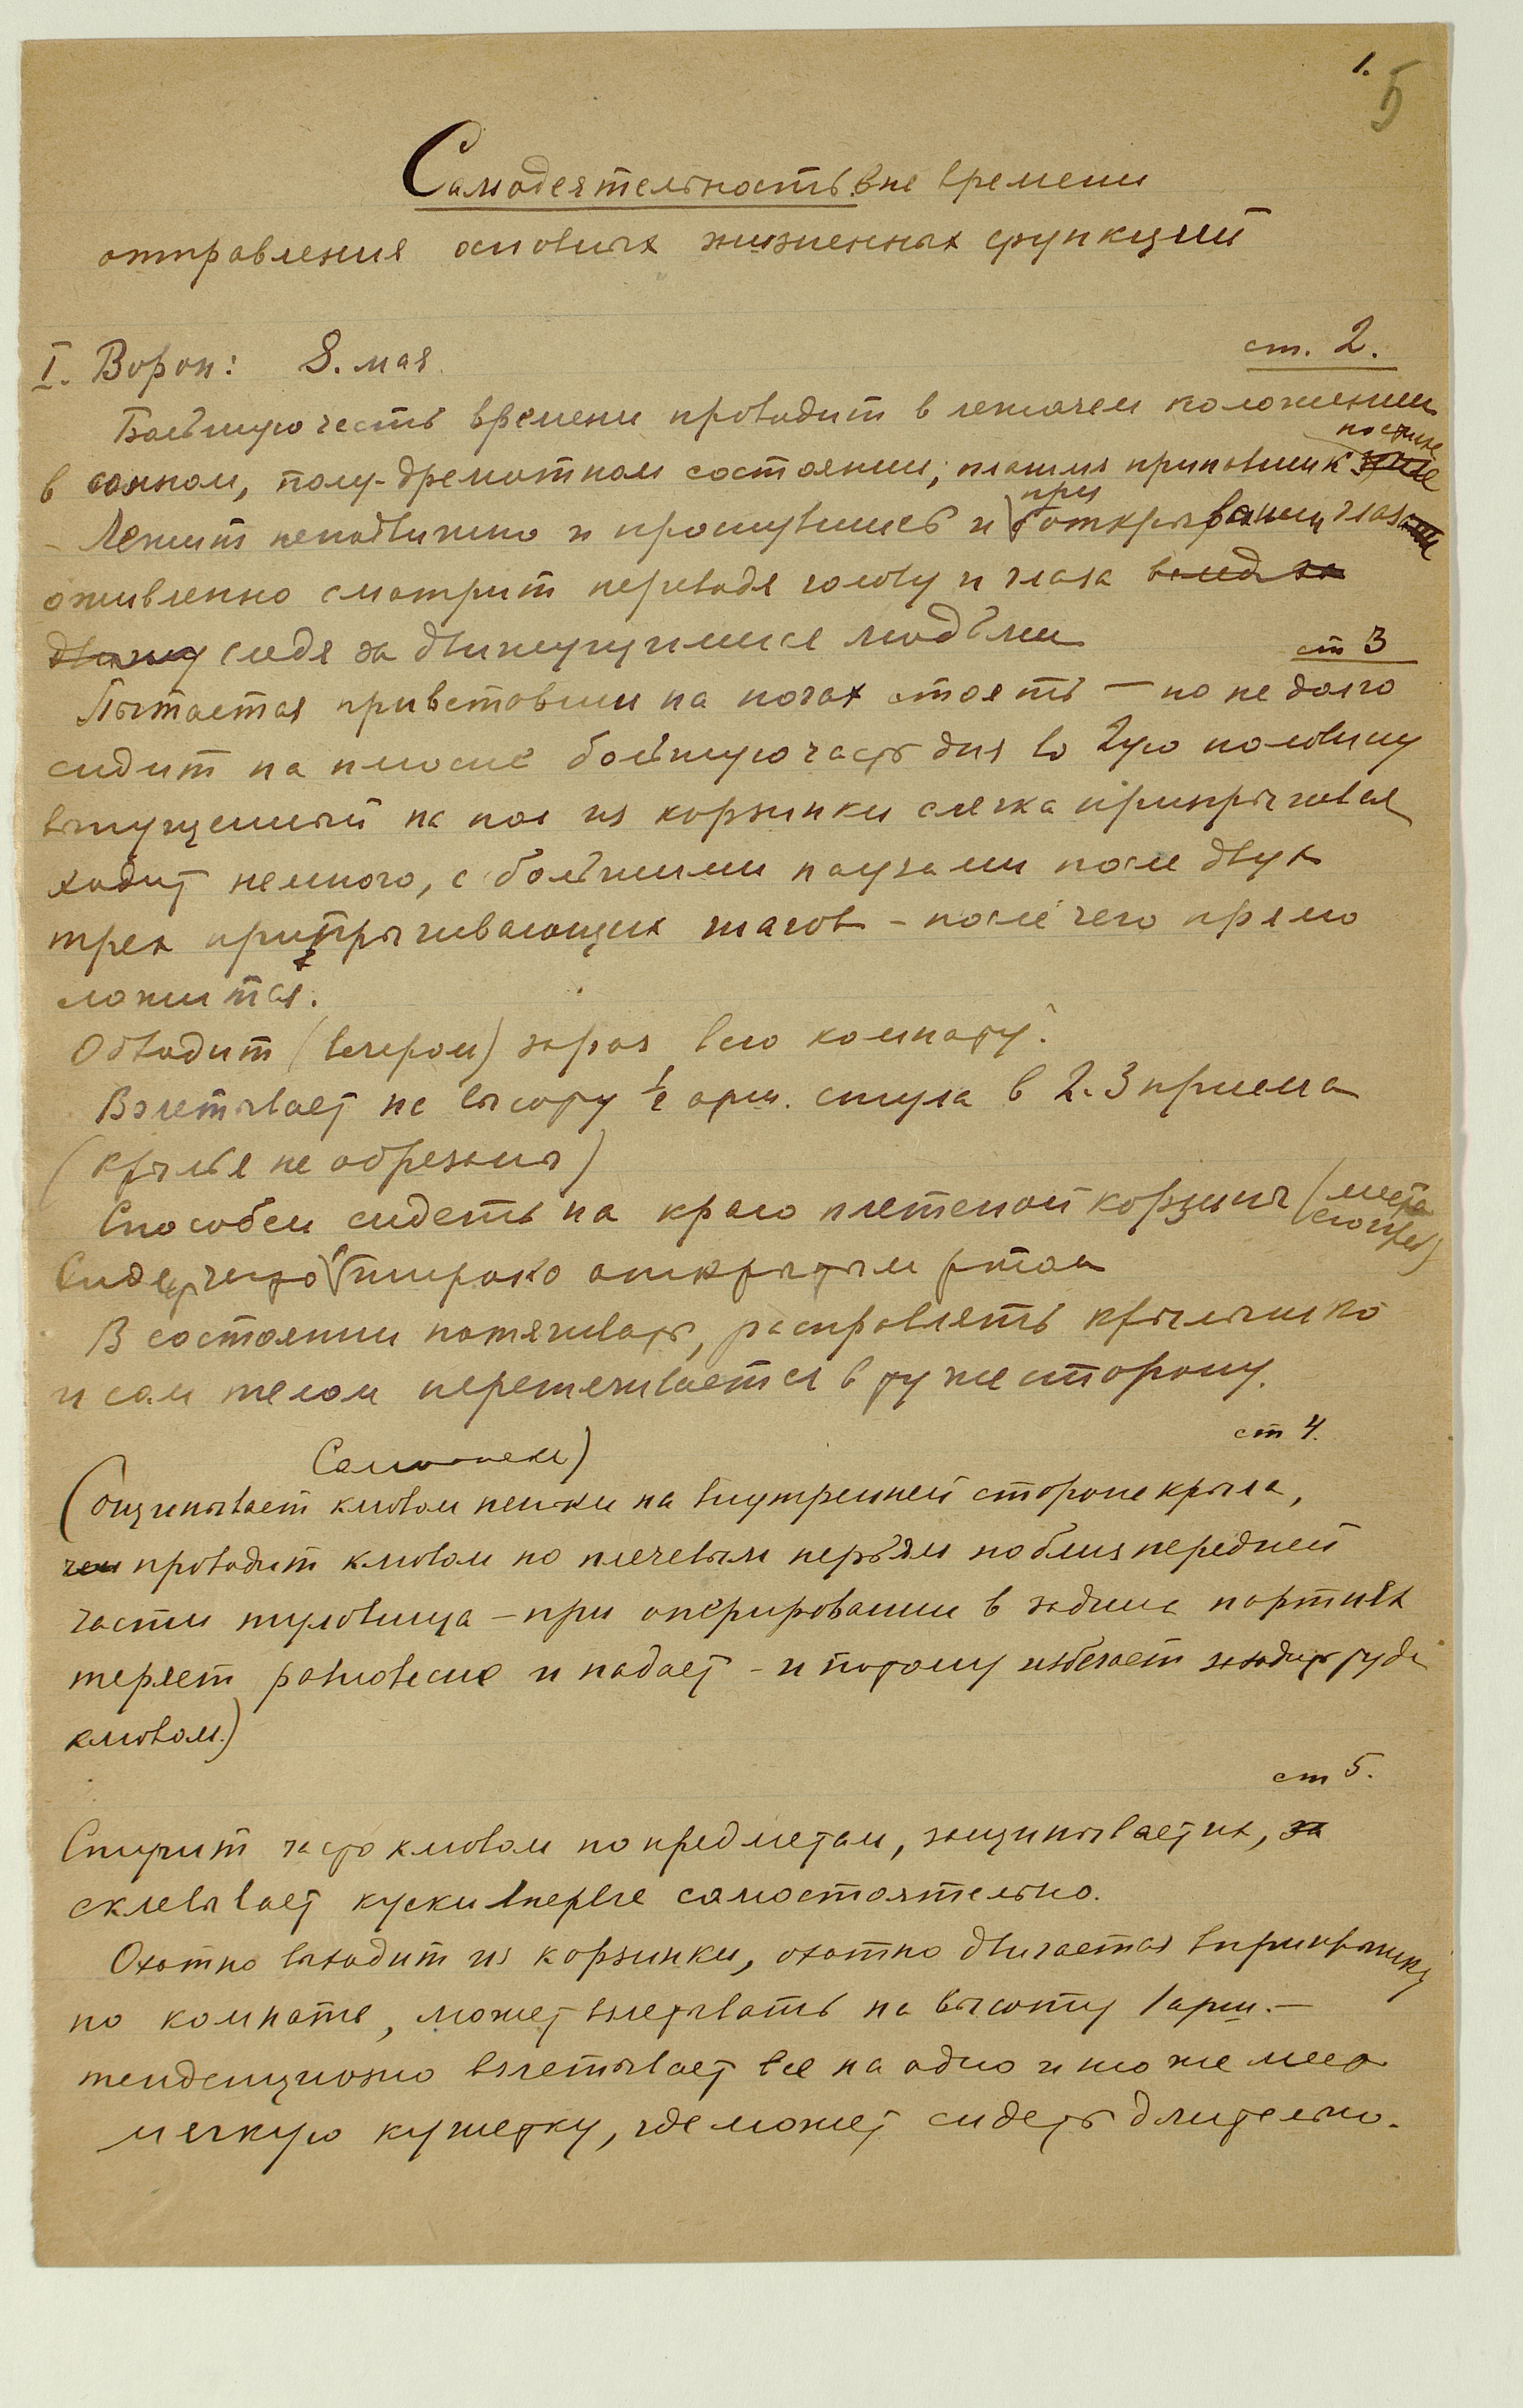 1.
5
Самодеятельность вне времени
отправления основных жизненных функций
I. Ворон: 8. мая.
ст. 2.
Большую часть времени проводит в лежачем положении
в сонном, полу-дремотном состоянии; плашмя приповши к
Лежит неподвижно и проснувшись и при открывании глаз
оживленно смотрит переводя голову и глаза вслед за
следя за движущимися людьми
ст 3
Пытается привставши на ногах стоять — но не долго
сидит на плюсне большую часть дня во 2ую половину
выпущенный на пол из корзинки слегка припрыгивая
ходит немного, с большими паузами после двух
трех припрыгивающих шагов – после чего прямо
ложится.
Обходит (вечером) зараз всю комнату.
Взлетывает на высоту ½ арш. стула в 2-3 приема
(крылья не обрезаны)
Способен сидеть на краю плетеной корзины (места
Сидит часто с широко открытым ртом
В состоянии потягивать, расправлять крылышко
и сам телом перетягивается в ту же сторону.
ст 4.
(ощипывает клювом пеньки на внутренней стороне крыла,
проводит клювом по плечевым перьям поблиз передней
части туловища – при оперировании в задних партиях
теряет равновесие и падает – и потому избегает заходить туда
клювом.)
ст 5.
Стучит часто клювом по предметам, защипывает их, за
склевывает куски впервые самостоятельно.
Охотно выходит из корзинки, охотно двигается вприпрыжку
по комнате, может взлетывать на высоту 1 арш. —
тенденциозно взлетывает все на одно и то же место
мягкую кушетку, где может сидеть длительно.